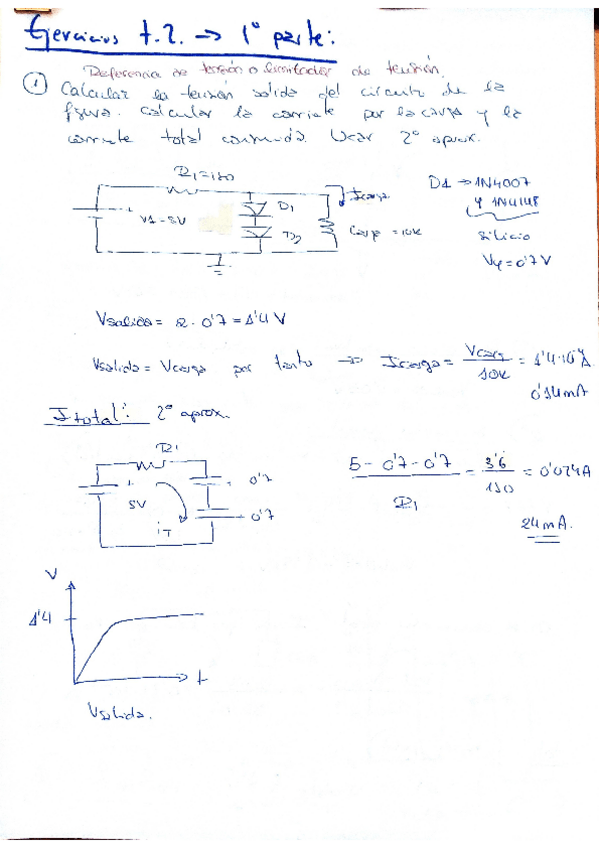 Ejercicios t.2. → 1º parte:
Referencia de tensión o limitador de tensión.
① Calcular la tensión salida del circuito de la
figura. Calcular la corriente por la carga y la
corriente total consumida. Usar 2º aprox.
R1=150
Icarga
D1 → 1N4007
V1 - 5V
D1
y 1N4148
D2
Carga = 10K
Silicio
Vγ = 0'7 V
Vsalida = 2 · 0'7 = 1'4 V
Vsalida = Vcarga por tanto → Icarga = Vcarg / 10K = 1'4·10⁻⁴ A
0'14 mA
I total: 2º aprox.
R1
5 - 0'7 - 0'7 / R1 = 3'6 / 150 = 0'024A
0'7
5V
0'7
iT
24 mA.
V
1'4
t
Vsalida.